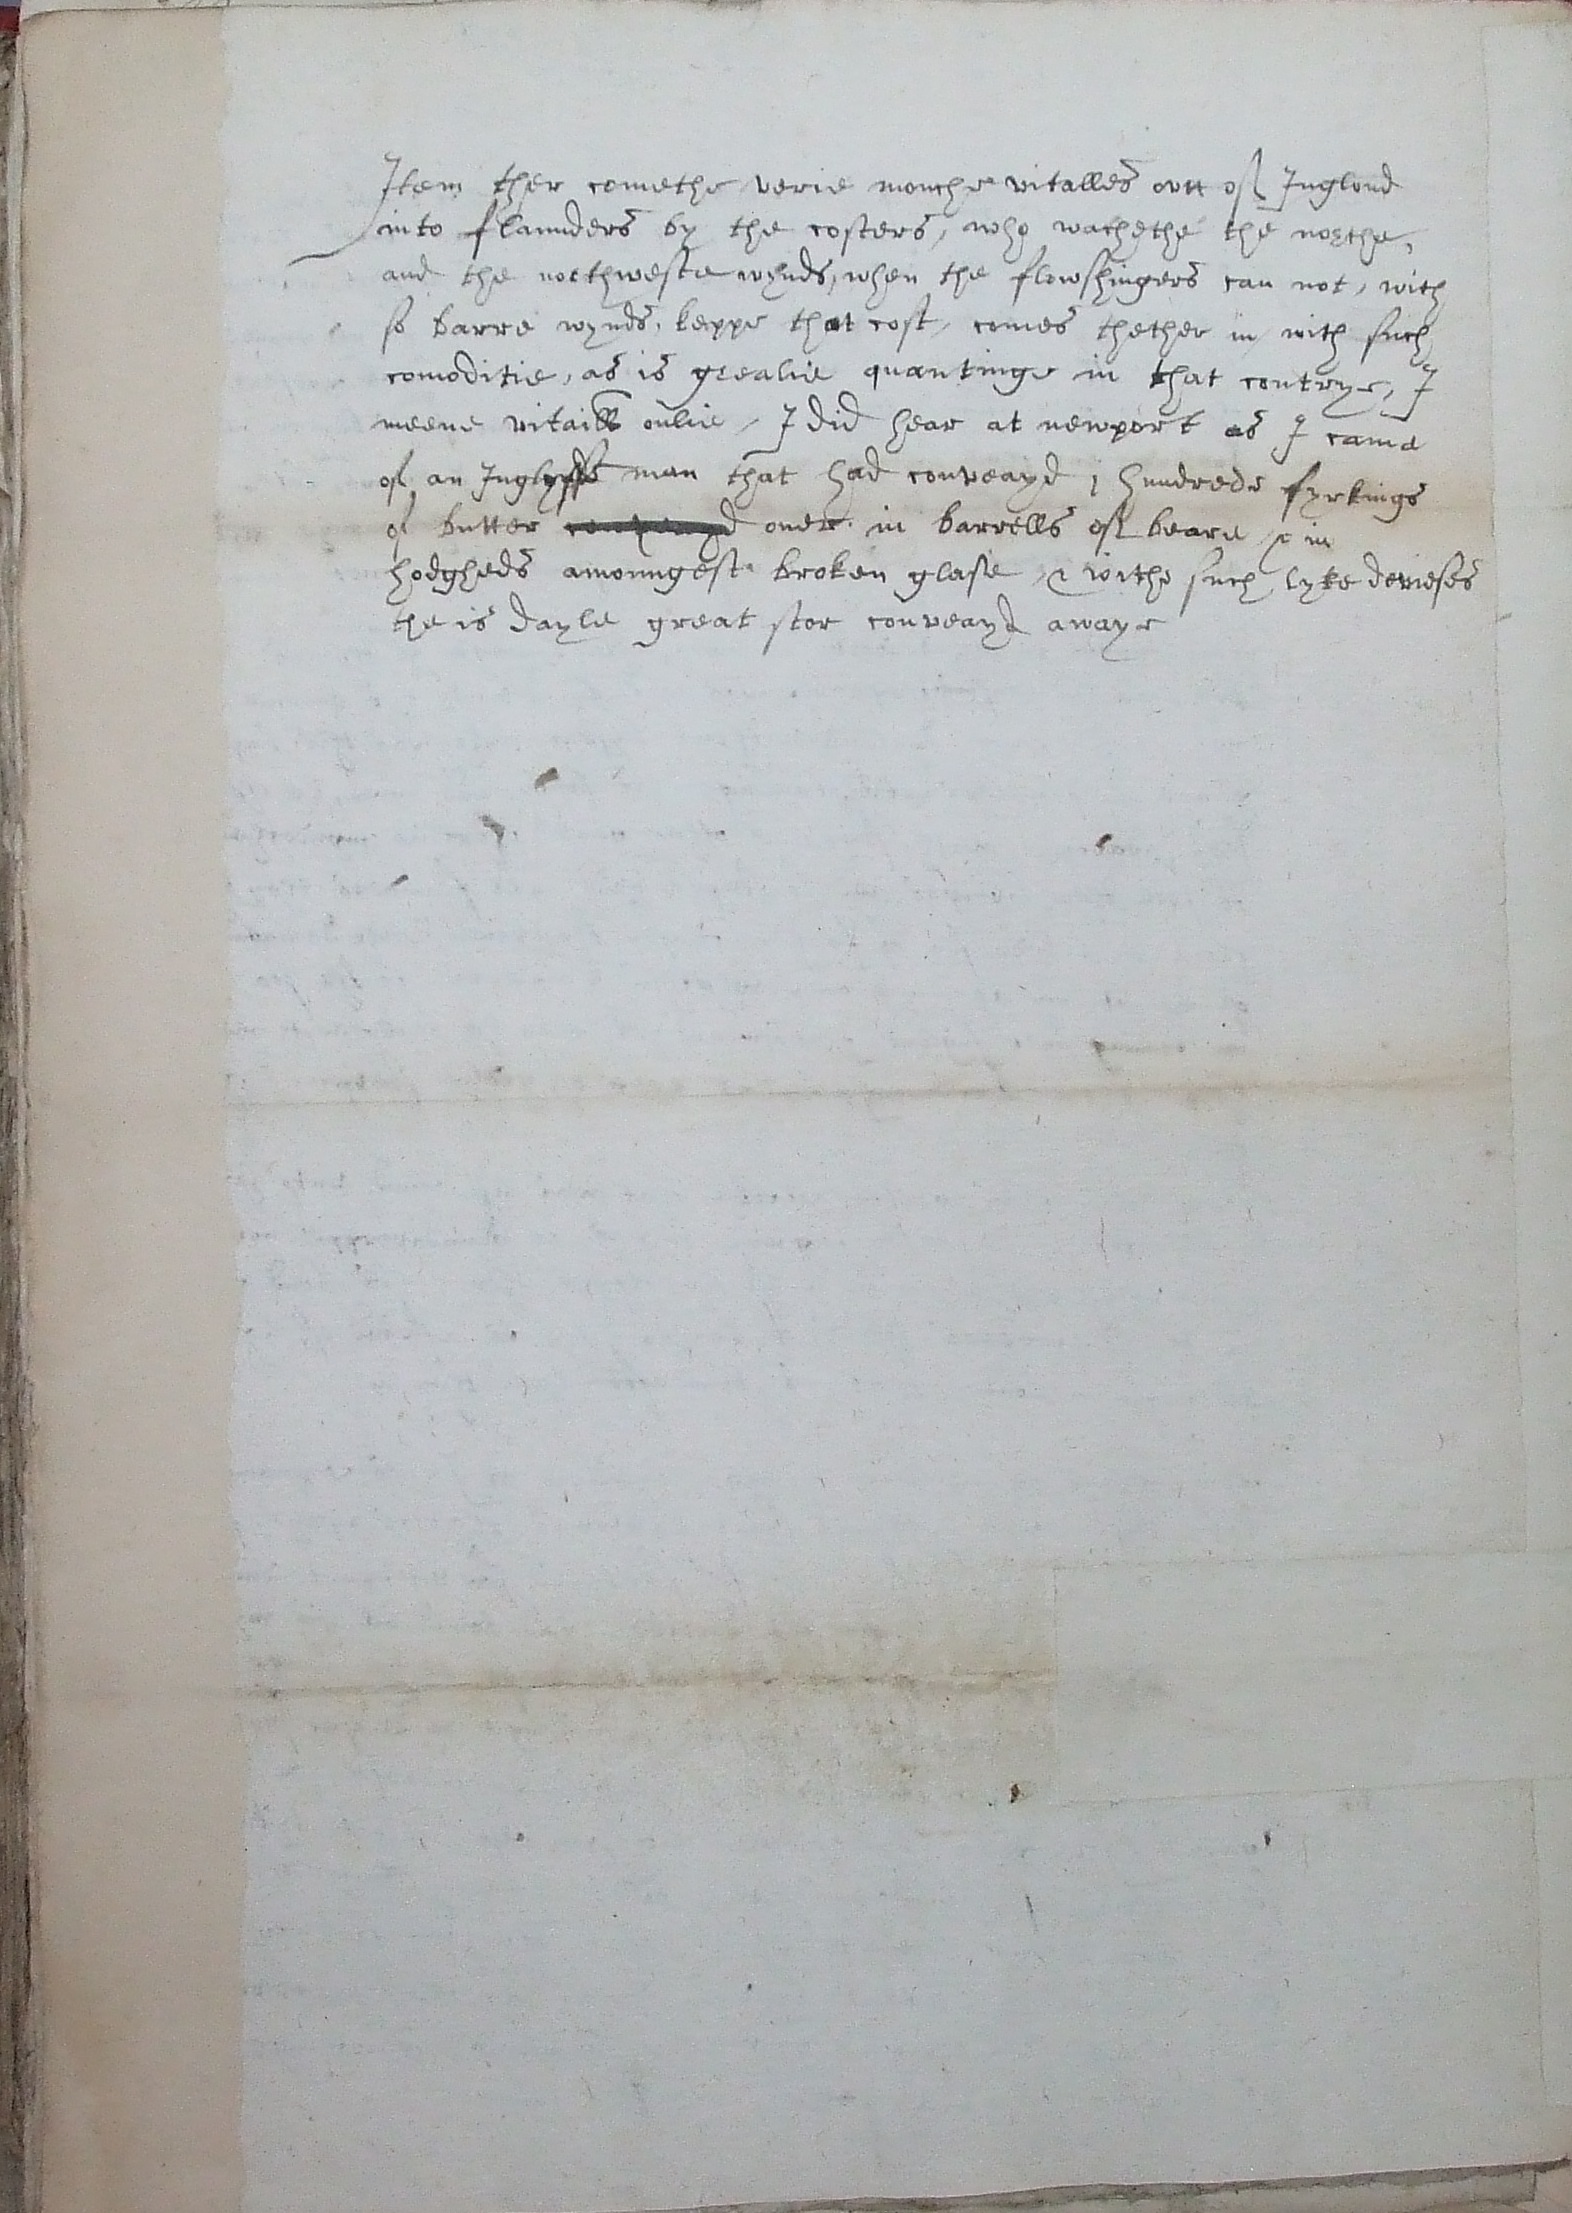 Item ther comethe verie mouche vitalles out of Inglond
into flaunders by the costers, who wachethe the northe,
and the northweste wynds, when the flowshingers can not, with
so barre wynds, keppe that cost, comes thether in, with such
comoditie, as is grealie quantinge in that contrye, I
meene vitaills onlie, I did hear at newport as I came
of an Inglysshe man that had conveayd 1 hundrede fyrkings
of butter conveayd over in barrells of beare, & in
hodgheds amoungest broken glase, & withe such lyke devieses
the is dayle great stor conveayd awaye